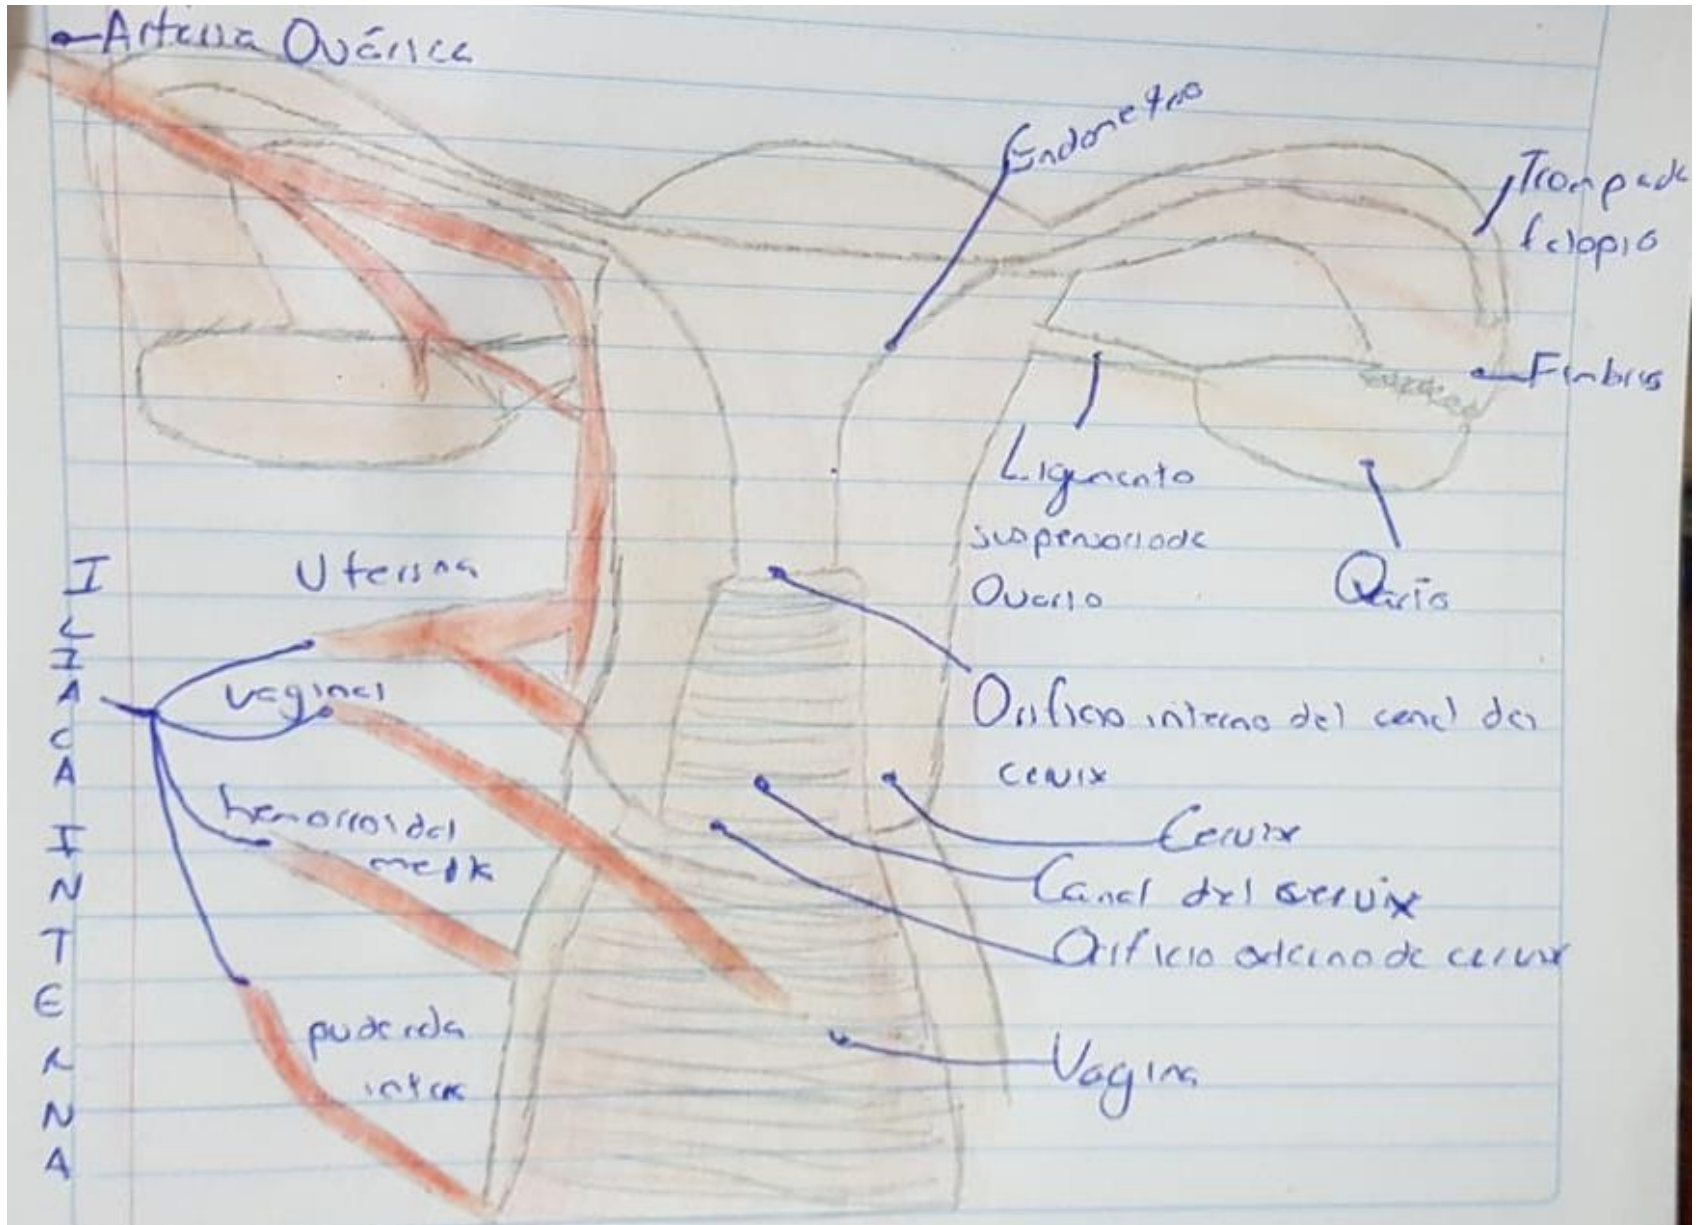 Arteria Ovárica
Endometrio
Trompa de
falopio
Fimbrias
Ligamento
suspensorio de
Ovario
Ovario
Uterina
vaginal
hemorroidal
media
pudenda
interna
ILIACA INTERNA
Orificio interno del canal del
cervix
Cervix
Canal del cervix
Orificio externo de cervix
Vagina